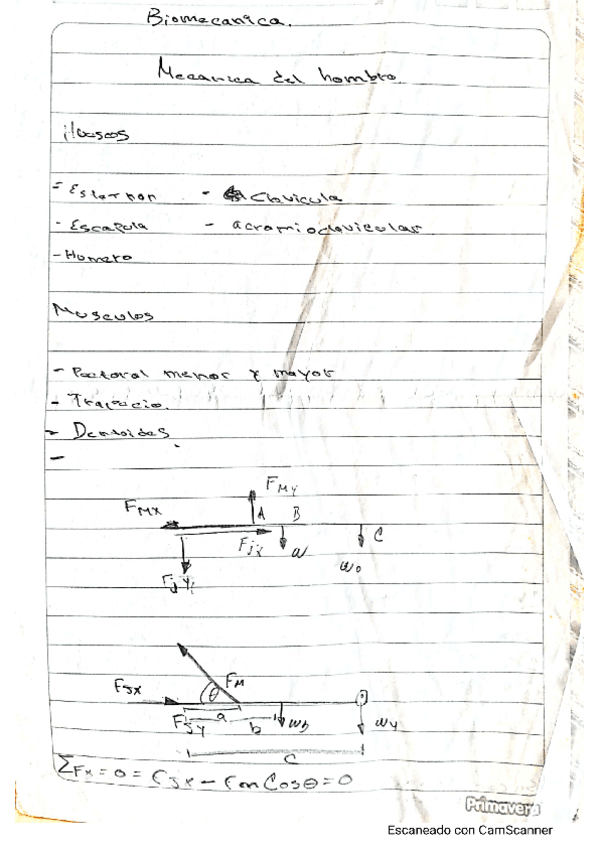 Biomecanica.
Mecanica del hombro
Huesos
- Esternon - Clavicula
- Escapula - acromioclavicular
- Humero
Musculos
- Pectoral menor y mayor
- Trapecio.
- Dentoides
-
FMY
FMX A B
FJX W C
FJY W0
FM
FJX θ
FJY a b Wb WY
C
ΣFx = 0 = FJX - Fm Cosθ = 0
Primavera
Escaneado con CamScanner